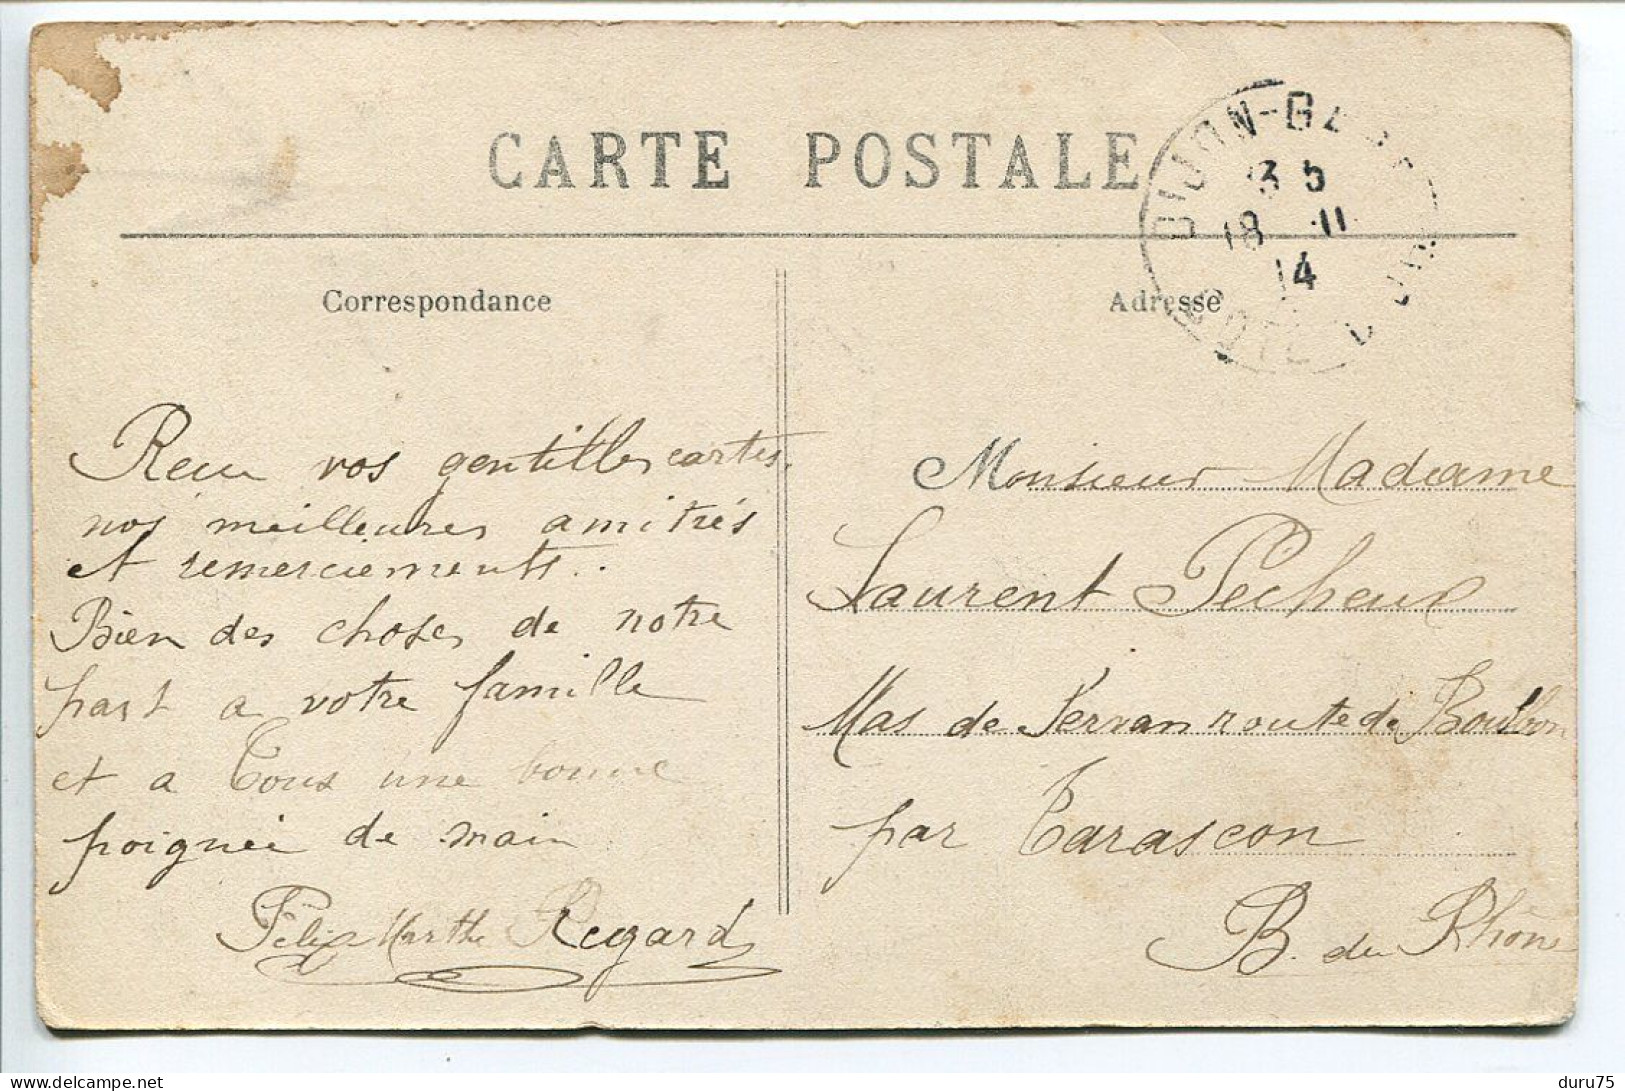 CARTE POSTALE
DIJON-GARE
3 5
18 11
14
COTE D'OR
Correspondance
Adresse
Recu vos gentilles cartes,
nos meilleures amitiés
et remerciements..
Bien des choses de notre
part a votre famille
et a Tous une bonne
poignée de main
Félix Marthe Regard
Monsieur Madame
Laurent Pecheux
Mas de route de Boulbon
par Tarascon
B. du Rhône
delcampe.net
duru75